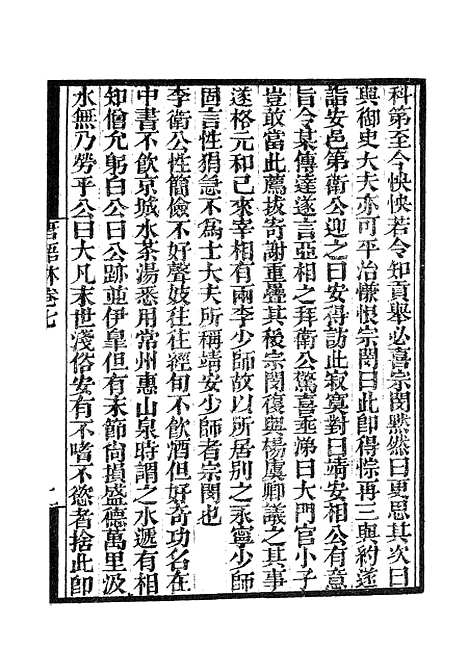 科第至今怏怏若令知貢舉必喜宗閔默然曰更思其次曰
與御史大夫亦可平治慊恨宗閔曰此卽得悰再三與約遂
詣安邑第衛公迎之曰安得訪此寂寞對曰靖安相公有意
旨令某傳達遂言亞相之拜衛公驚喜垂涕曰大門官小子
豈敢當此薦拔寄謝重疊其後宗閔復與楊虞卿議之其事
遂格元和已來宰相有兩李少師故以所居別之永寧少師
固言性狷急不爲士大夫所稱靖安少師者宗閔也
李衛公性簡儉不好聲妓往往經旬不飲酒但好奇功名在
中書不飲京城水茶湯悉用常州惠山泉時謂之水遞有相
知僧允躬白公曰公跡並伊臯但有末節尙損盛德萬里汲
水無乃勞乎公曰大凡末世淺俗安有不嗜不慾者捨此卽
唐語林卷七